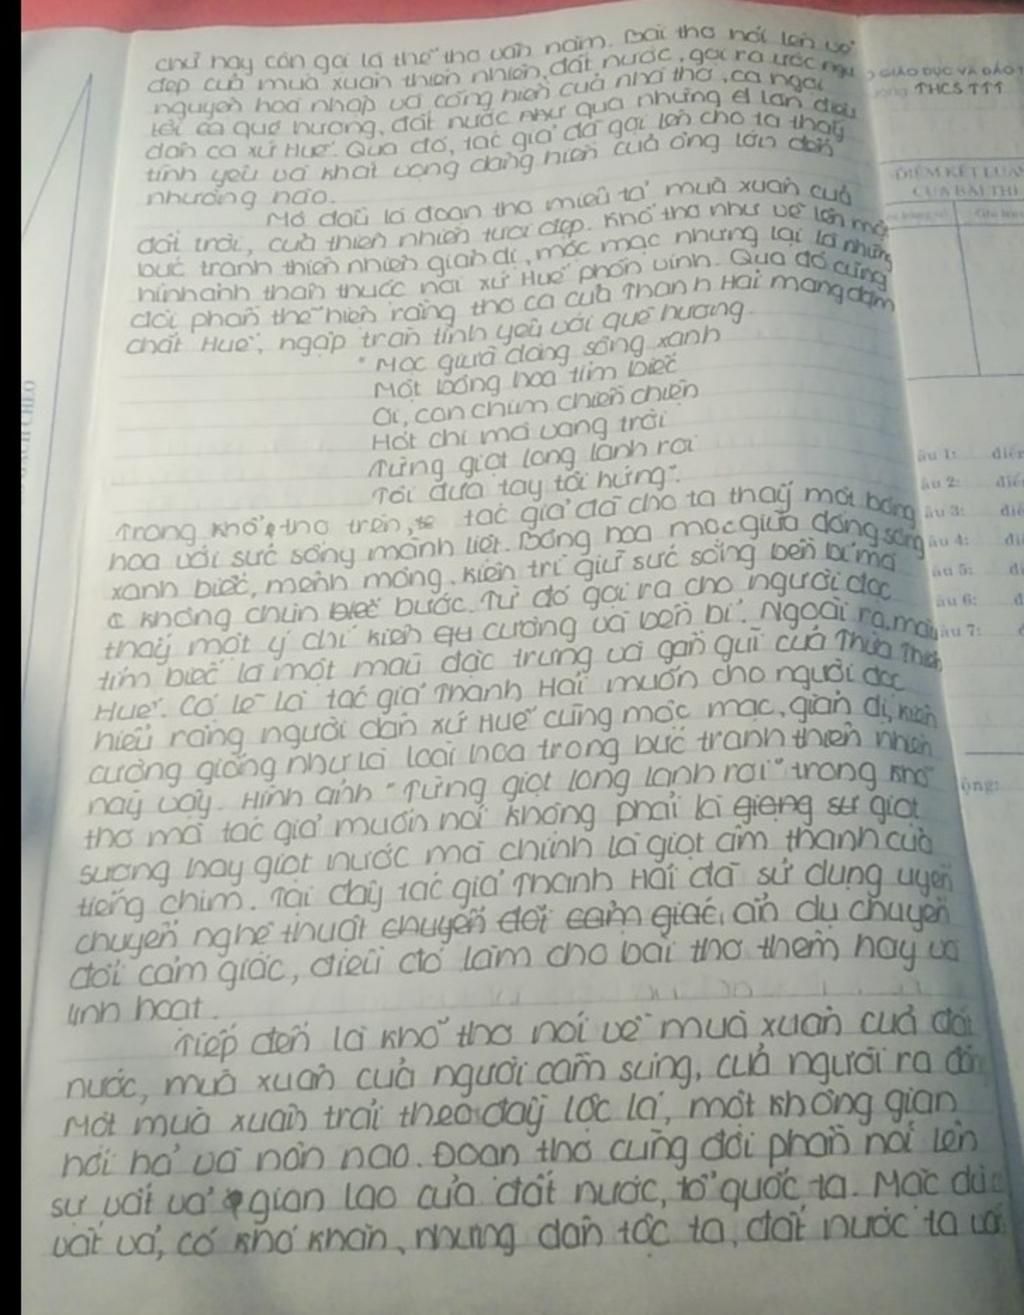 chữ hay còn gọi là thể thơ văn năm. Bài thơ nói lên vẻ
đẹp của mùa xuân thiên nhiên, đất nước, gợi ra ước
nguyện hoà nhập và cống hiến của nhà thơ, ca ngợi
quê hương, đất nước như qua những làn điệu
dân ca xứ Huế. Qua đó, tác giả đã gợi lên cho ta thấy
tình yêu và khát vọng dâng hiến của ông lớn đến
nhường nào.
Mở đầu là đoạn thơ miêu tả mùa xuân của
đất trời, của thiên nhiên tươi đẹp. Khổ thơ như vẽ lên một
bức tranh thiên nhiên giản dị, mộc mạc nhưng lại là những
hình ảnh thân thuộc nơi xứ Huế phồn vinh. Qua đó cũng
đôi phần thể hiện rằng thơ ca của Thanh Hải mang đậm
chất Huế, ngập tràn tình yêu với quê hương.
"Mọc giữa dòng sông xanh
Một bông hoa tím biếc
Ơi, con chim chiền chiện
Hót chi mà vang trời
Từng giọt long lanh rơi
Tôi đưa tay tôi hứng".
Trong khổ thơ trên, tác giả đã cho ta thấy một bông
hoa với sức sống mãnh liệt. Bông hoa mọc giữa dòng sông
xanh biếc, mênh mông, kiên trì giữ sức sống bền bỉ mà
không chùn bước. Từ đó gợi ra cho người đọc
thấy một ý chí kiên cường và bền bỉ. Ngoài ra, màu
tím biếc là một màu đặc trưng và gần gũi của Thừa Thiên
Huế. Có lẽ là tác giả Thanh Hải muốn cho người đọc
hiểu rằng người dân xứ Huế cũng mộc mạc, giản dị, kiên
cường giống như là loài hoa trong bức tranh thiên nhiên
này vậy. Hình ảnh "Từng giọt long lanh rơi" trong khổ
thơ mà tác giả muốn nói không phải là giọt
sương hay giọt nước mà chính là giọt âm thanh của
tiếng chim. Tại đây tác giả Thanh Hải đã sử dụng uyển
chuyển nghệ thuật chuyển đổi cảm giác, ẩn dụ chuyển
đổi cảm giác, điều đó làm cho bài thơ thêm hay và
linh hoạt.
Tiếp đến là khổ thơ nói về mùa xuân của đất
nước, mùa xuân của người cầm súng, của người ra đồng
Một mùa xuân trải theo đầy lộc lá, một không gian
hối hả và nôn nao. Đoạn thơ cũng đôi phần nói lên
sự vất vả gian lao của đất nước, tổ quốc ta. Mặc dù
vất vả, có khó khăn, nhưng dân tộc ta, đất nước ta vẫn
GIÁO DỤC VÀ ĐÀO T
THCS TTT
ĐIỂM KẾT LUẬN
CỦA BÀI THI
âu 1: điểm
âu 2: điể
âu 3: điể
âu 4: đi
âu 5: đ
âu 6: đ
âu 7:
ộng: